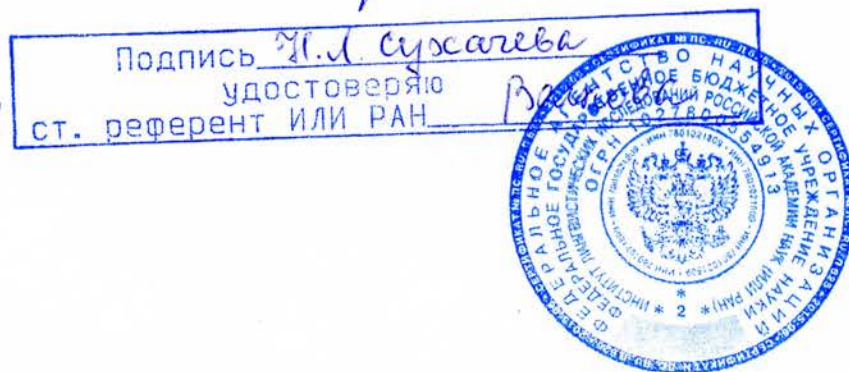 Подпись Н.Л. Сухачева
удостоверяю
ст. референт ИЛИ РАН
ФЕДЕРАЛЬНОЕ АГЕНТСТВО НАУЧНЫХ ОРГАНИЗАЦИЙ
ФЕДЕРАЛЬНОЕ ГОСУДАРСТВЕННОЕ БЮДЖЕТНОЕ УЧРЕЖДЕНИЕ НАУКИ
ИНСТИТУТ ЛИНГВИСТИЧЕСКИХ ИССЛЕДОВАНИЙ РОССИЙСКОЙ АКАДЕМИИ НАУК (ИЛИ РАН)
ОГРН 1027800554913
* 2 *